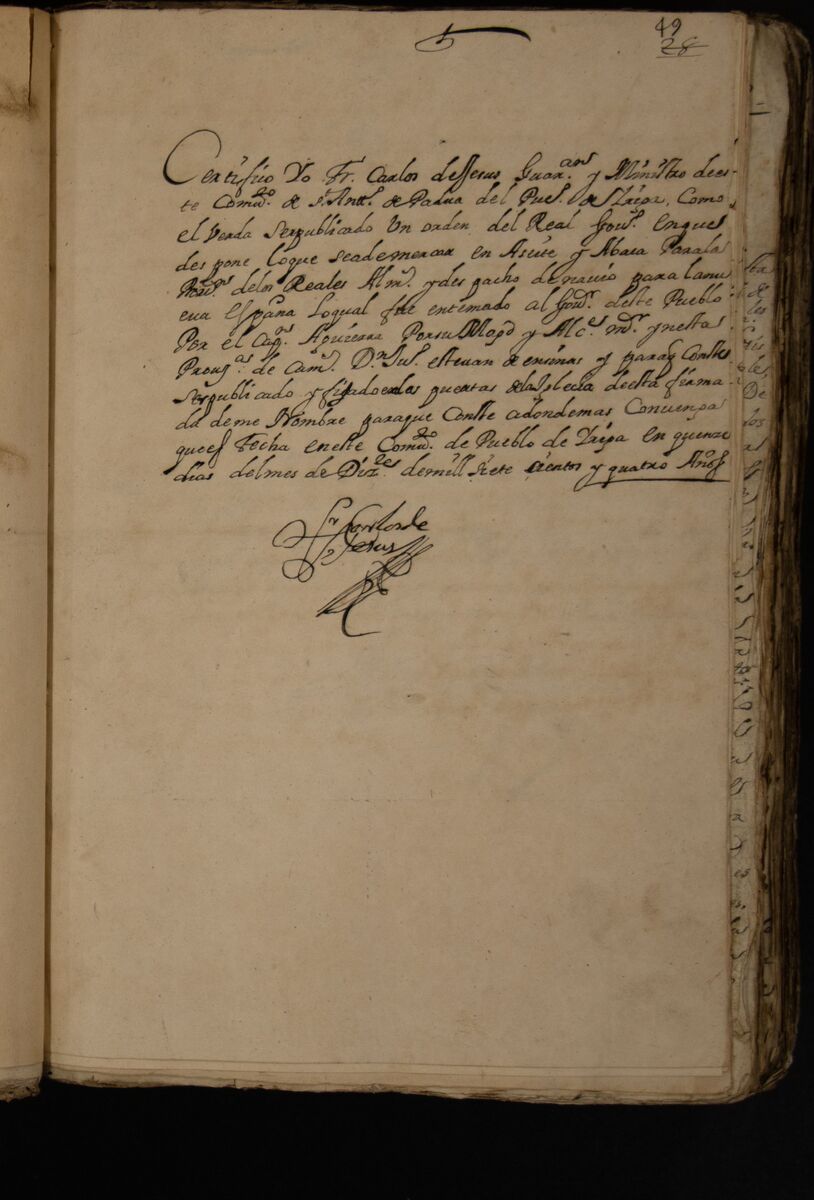 49
28
Certifico Yo Fr. Carlos de Jesus Guar.an y Ministro de es-
te Com.to de Sn Antt.o de Padua del Pue.o de Yriga, Como
el Verda Serpublicado Un orden del Real Gov.o en que se
des pone lo que se a de mercar en Aseite y Abaca Para las
de los Reales Alm.s y des pacho de navio para la nu
eva España Lo qual fue entemado al Gov.dr deste Pueblo
Por el Cap.n Aguierra Por su Mag.d y Alc.e m.or y nestas
Prov.as de Cam.s D.n Ju.o estevan de ensinas y para q Conste
Serpublicado y fijado en las puertas de la Iglecia de esta firma
da de me Nombre para que Conste a dondemas Convenga
que es Fecha en este Com.to de Pueblo de Yriga en quenze
dias del mes de Diz.es de mill siete cientos y quatro Años
Fr Carlos de
Jesus